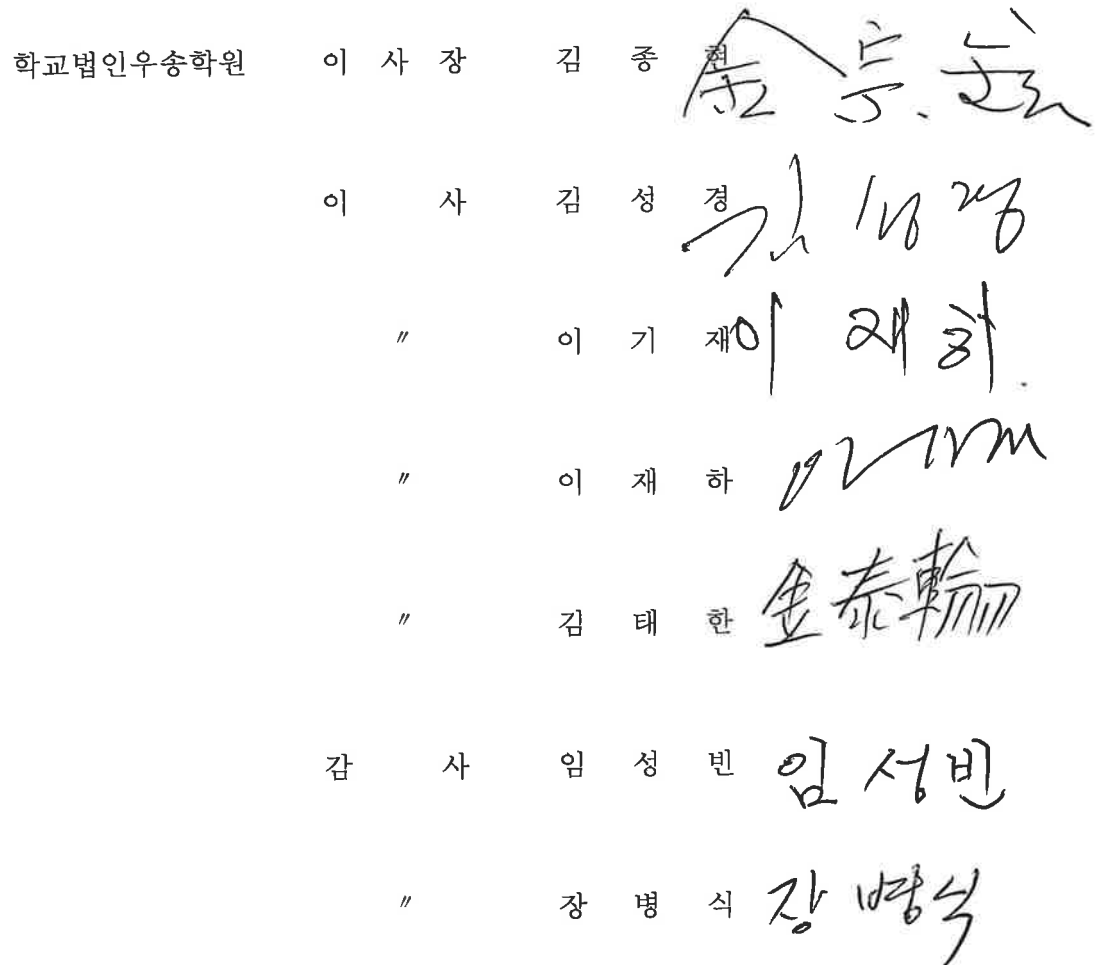 학교법인우송학원 이 사 장 김 종 현 金
이 사 김 성 경 김성경
〃 이 기 재 이재하
〃 이 재 하
〃 김 태 한 金泰翰
감 사 임 성 빈 임성빈
〃 장 병 식 장병식